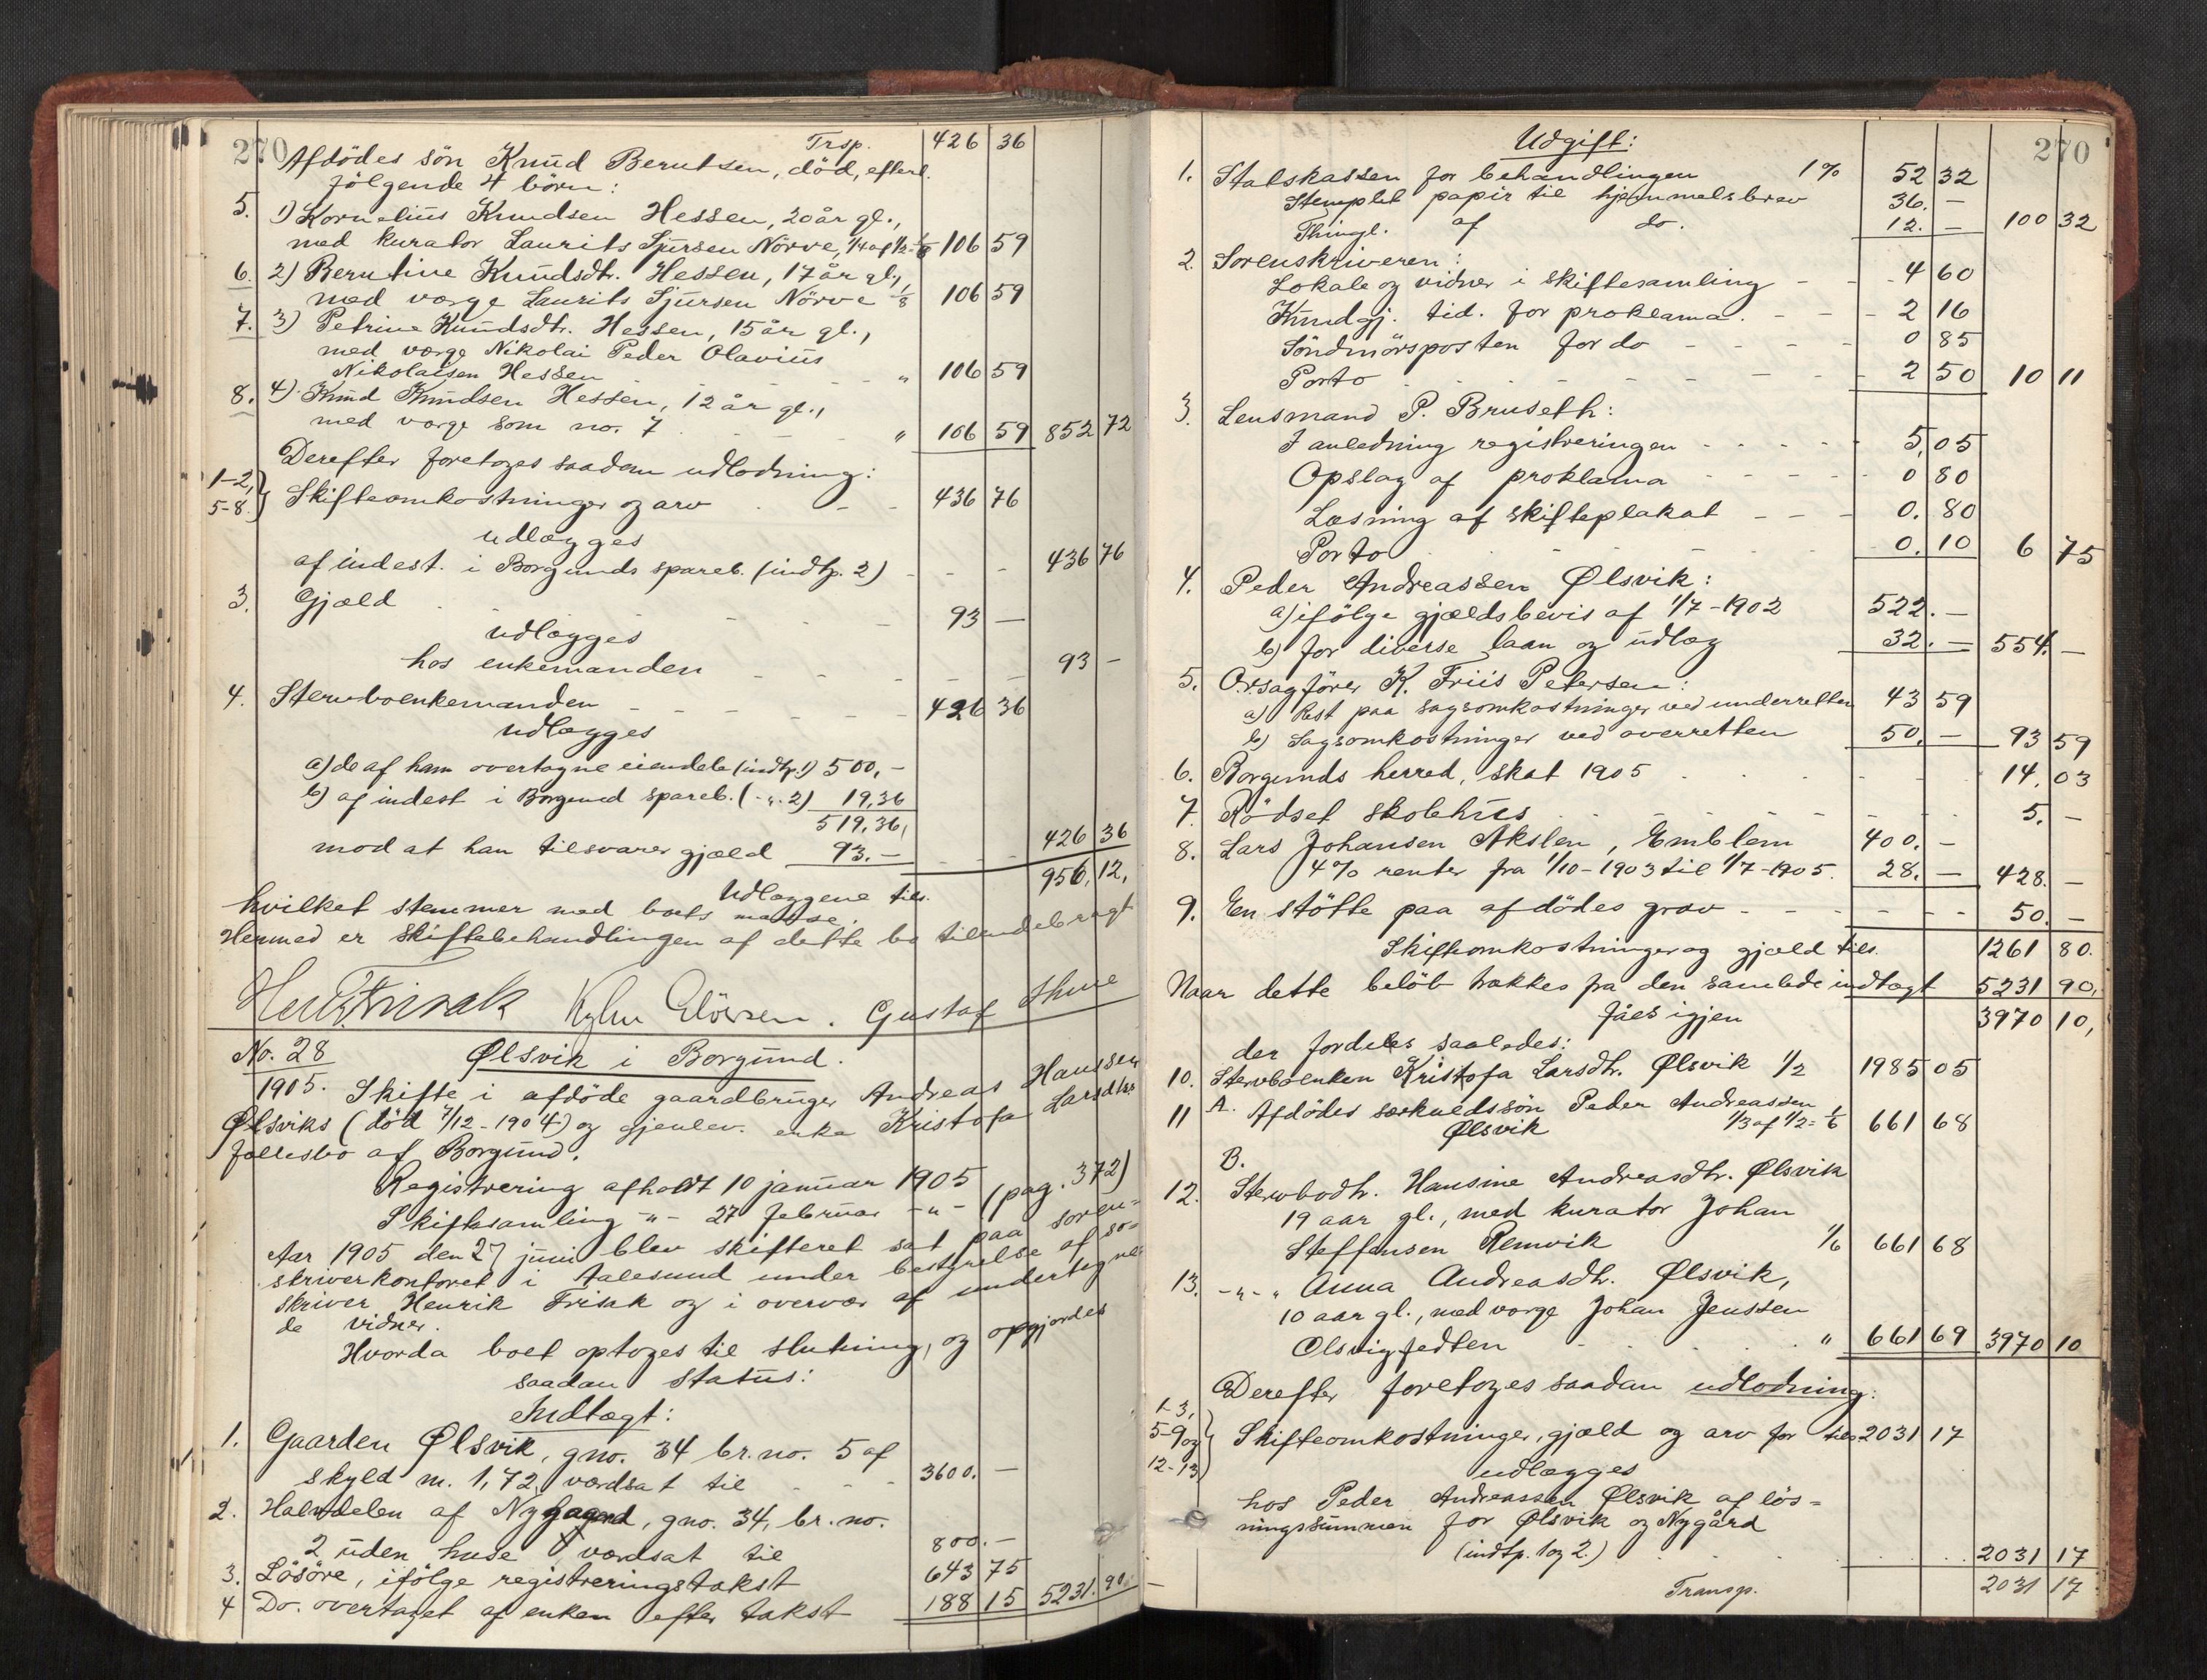 270
Trsp. 426 36
Afdödes sön Knud Berntsen, död, efterl.
følgende 4 børn:
5. 1) Kornelius Knudsen Hessen, 20 år gl.,
med kurator Laurits Sjursen Nörve, 1/4 af 1/2 = 1/8 106 59
6. 2) Berntine Knudsdtr. Hessen, 17 år gl.,
med værge Laurits Sjursen Nörve 1/8 106 59
7. 3) Petrine Knudsdtr. Hessen, 15 år gl.,
med værge Nikolai Peder Olavius
Nikolaisen Hessen - - - " 106 59
8. 4) Knud Knudsen Hessen, 12 år gl.,
med værge som no. 7 - - " 106 59 852 72
Derefter foretages saadan udlodning:
1-2, 5-8. } Skifteomkostninger og arv - - 436 76
udlægges
af indest. i Borgunds spareb. (indtp. 2) - - - 436 76
3. Gjæld - - - 93 —
udlægges
hos enkemanden - - - 93 -
4. Stervboenkemanden - - - 426 36
udlægges
a) de af ham overtagne eiendele (indtp. 1) 500,-
b) af indest i Borgund spareb. (-"- 2) 19,36
519,36,
mod at han tilsvarer gjæld 93.— - - 426 36
Udlæggene tils. 956, 12,
hvilket stemmer med boets masse.
Hermed er skiftebehandlingen af dette bo tilendebragt
Gustaf Thure
No. 28 Ølsvik i Borgund.
1905. Skifte i afdöde gaardbruger Andreas Hanssen
Ølsviks (död 7/12-1904) og gjenlev. enke Kristofa Larsdtrs
fællesbo af Borgund.
Registrering afholdt 10 januar 1905 (pag. 372)
Skiftesamling -"- 27 februar -"-
Aar 1905 den 27 juni blev skifteret sat paa soren-
skriverkontoret i Aalesund under bestyrelse af so-
skriver Henrik Frisak og i overvær af undertegne-
de vidner.
Hvorda boet optoges til slutning, og opgjordes
saadan status:
Indtægt:
1. Gaarden Ølsvik, gno. 34 br. no. 5 af
skyld m. 1,72 værdsat til - - - 3600. —
2. Halvdelen af Nygaard, gno. 34, br. no.
2 uden huse, værdsat til 800. —
3. Lösöre, ifölge registreringstakst 643 75
4 Do. overtaget af enken efter takst 188 15 5231. 90.
270
Udgift:
1. Statskassen for behandlingen 1% 52 32
Stemplet papir til hjemmelsbrev 36. —
Thingl. af do. 12. — 100 32
2. Sorenskriveren:
Lokale og vidner i skiftesamling - - 4 60
Kundgj. tid. for proklama. - - - 2 16
Söndmörsposten for do - - - - 0 85
Porto - - - - 2 50 10 11
3. Lensmand P. Bruseth:
I anledning registreringen - - - - 5,05
Opslag af proklama - - - - 0 80
Læsning af skifteplakat - - - 0. 80
Porto - - - 0. 10 6 75
4. Peder Andreassen Ølsvik:
a) ifölge gjældsbevis af 1/7-1902 522. —
b) for diverse laan og udlæg 32. — 554. —
5. Orsagfører K. Friis Petersen:
a) Rest paa sagsomkostninger ved underretten 43 59
b) Sagsomkostninger ved overretten 50. — 93 59
6. Borgunds herred, skat 1905 - - - 14. 03
7. Rödset skolehus - - - 5. —
8. Lars Johansen Akslen, Emblem 400. —
4% renter fra 1/10-1903 til 1/7-1905. 28. — 428. —
9. En stötte paa afdödes grav - - - - 50. —
Skifteomkostninger og gjæld tils. 1261 80.
Naar dette beløb trækkes fra den samlede indtægt 5231 90,
fåes igjen 3970 10,
der fordeles saaledes:
10. Stervboenken Kristofa Larsdtr. Ølsvik 1/2 1985 05
11 A. Afdödes særkuldssön Peder Andreassen
Ølsvik 1/3 af 1/2 = 1/6 661 68
B.
12. Stervbodtr. Hansine Andreasdtr. Ølsvik
19 aar gl., med kurator Johan
Steffensen Remvik 1/6 661 68
13. -"- " Anna Andreasdtr. Ølsvik,
10 aar gl., med værge Johan Jenssen
Olsvigfedten - - - " 661 69 3970 10
Derefter foretages saadan udlodning:
1-3, 5-9 og 12-13 } Skifteomkostninger, gjæld og arv for tils 2031 17
udlægges
hos Peder Andreassen Ølsvik af lös-
ningssummen for Ølsvik og Nygård
(indtp. 1 og 2.) - - - 2031 17
Transp. 2031 17